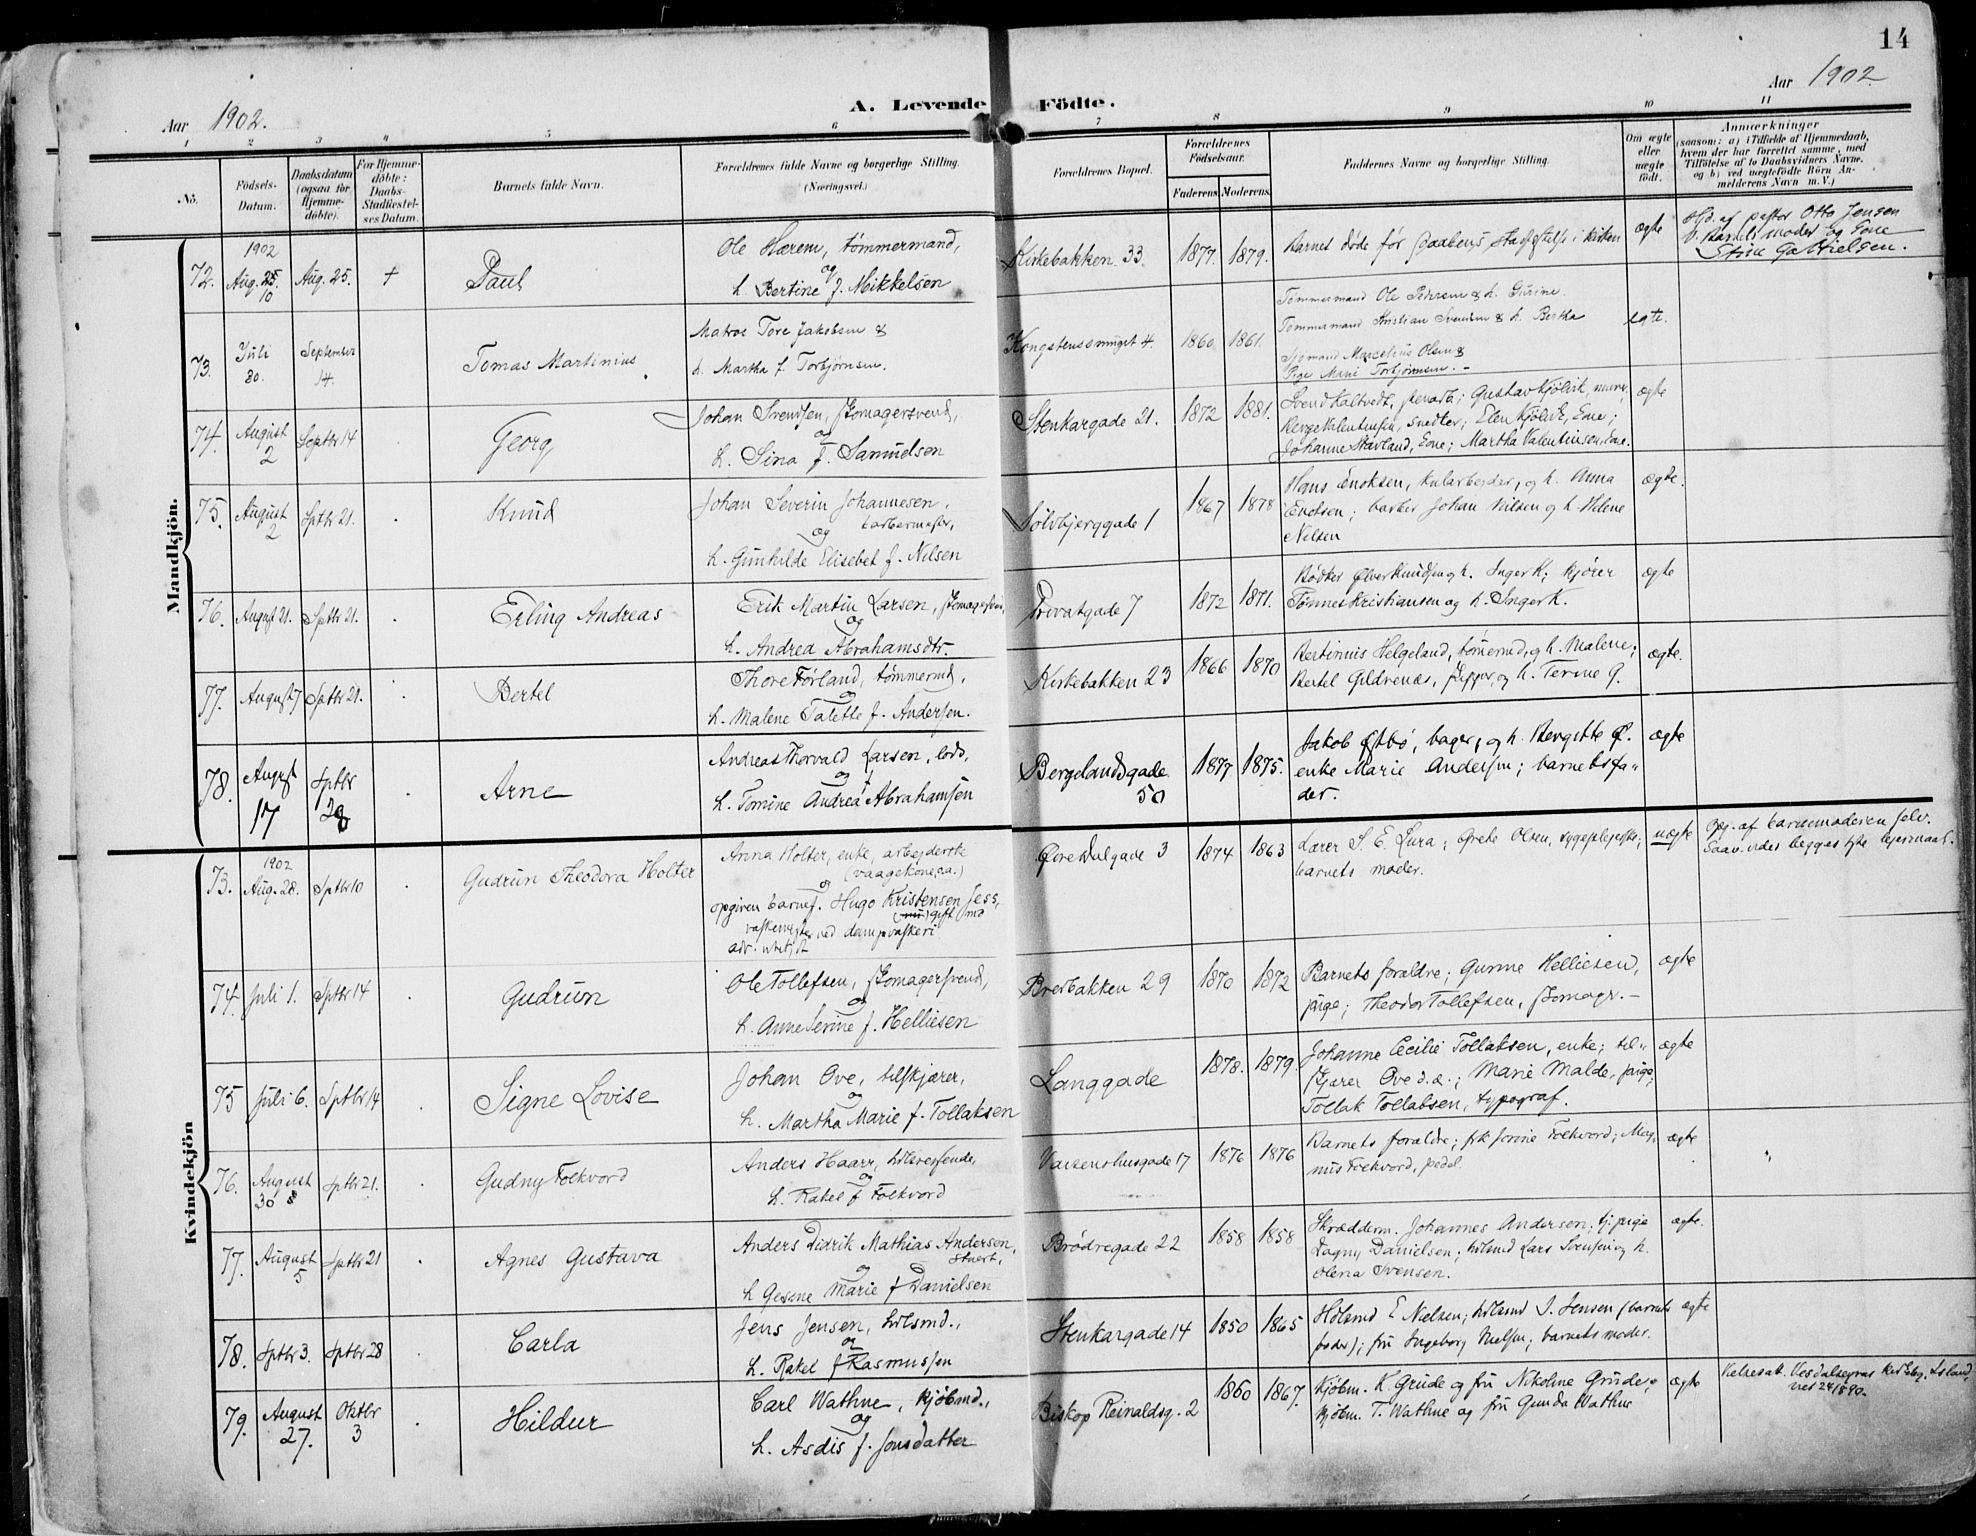 14
Aar 1902.
A. Levende Födte.
Aar 1902.
1 2 3 4 5 6 7 8 9 10 11
No.
Födsels-Datum.
Daabsdatum (ogsaa for Hjemmedöbte).
For Hjemmedöbte: Daabs-Stadfæstelses Datum.
Barnets fulde Navn.
Forældrenes fulde Navne og borgerlige Stilling.
(Næringsvei.)
Forældrenes Bopæl.
Forældrenes Födselsaar.
Faderens. Moderens.
Faddernes Navne og borgerlige Stilling.
Om ægte eller uægte födt.
Anmærkninger
(saasom: a) i Tilfælde af Hjemmedaab,
hvem der har forrettet samme, med
Tilföielse af to Daabsvidners Navne.
og b) ved uægtefödte Börn Anmelderens Navn m. V.)
Mandkjön.
1902
72. Aug. 10 Aug. 25. + Paul
Ole Hærem, tømmermand,
og
h. Bertine f. Mikkelsen
Kirkebakken 33. 1877. 1879. Barnet døde før daabens stadfæstelse i kirken ægte
Hjd. af pastor Otto Jensen
v. Barnets moder og Fone
73. Juli 30. September 14. Tomas Martinius
Matros Tore Jakobsen &
h. Martha f. Torbjørnsen.
Kongstensmuget 4. 1860 1861.
Tømmermand Ole Pedersen & h. Gurine.
Tømmermand Kristian Svendsen & h. Bertha
Sjømand Marcelius Olsen &
Pige Marie Torbjørnsen. -
egte.
74. August 2 Septbr 14 Georg
Johan Svendsen, skomagersvend,
og
h. Sina f. Samuelsen
Stenkargade 21. 1872 1881.
Gustav Kjölvik, murer,
Valentinsen, snedker; Elen Kjölvik, Kone;
Johanne Stavland, Kone; Martha Valentinsen, Kone.
ægte
75. August 2 Sptbr 21. Knud
Johan Severin Johannesen,
barbermester,
og
h. Gunhilde Elisebet f. Nilsen
Sölvbjerggade 1 1867 1878
Hans Enoksen, kularbeider, og h. Anna
Enoksen; barber Johan Nilsen og h. Helene
Nilsen
ægte.
76. August 21. Sptbr 21. Erling Andreas
Erik Martin Larsen, skomagersvend,
og
h. Andrea Abrahamsdtr.
Privatgade 7 1872 1871.
Bødker Ølver Knudsen og h. Inger K; kjører
Tønnes Kristiansen og h. Inger K.
ægte
77. August 7 Sptbr 21. Bertel
Thore Førland, tømmermd,
og
h. Malene Talette f. Andersen.
Kirkebakken 23 1866 1870
Bertinius Helgeland, tömermd, og h. Malene;
Bertel Gildrenæs, skipper, og h. Terine G.
ægte.
78. August 17 Sptbr 28 Arne
Andreas Thorvald Larsen, lods,
og
h. Tomine Andrea Abrahamsen
Bergelandsgade 50 1877 1875.
Jakob Østbö, bager, og h. Bergitte Ø.
enke Marie Andersen; barnets fader.
ægte
Kvindekjön
1902
73. Aug. 28. Sptbr 10 Gudrun Theodora Holter
Anna Holter, enke, arbejderske
(vaagekone, o.a.)
og
opgiven barnef. Hugo Kristensen Jess,
gift md
ved dampvaskeri
Øvre Dalgade 3 1874 1863
Lærer S. E. Lura; Grete Olsen, sygeplejeske;
barnets moder.
uægte
Opg. af barnemoderen selv.
begges lejermaal.
74. Juli 1. Sptbr 14 Gudrun
Ole Tollefsen, skomagersvend,
og
h. Anne Serine f. Helliesen
Bredbakken 29 1870 1872
Barnets forældre; Gurine Helliesen,
pige; Theodor Tollefsen, skomagr. -
ægte
75 Juli 6. Sptbr 14 Signe Lovise
Johan Ove, tilskjærer,
og
h. Martha Marie f. Tollaksen
Langgade 1878. 1879.
Johanne Cecilie Tollaksen, enke; til-
skjærer Ove d.æ.; Marie Malde, pige;
Tollak Tollaksen, typograf.
ægte
76. August 30 Sptbr 21. Gudny Folkvord
Anders Haarr, hdlsreisende,
og
h. Rakel f Folkvord
Vaisenhusgade 17 1876 1876
Barnets forældre; frk Jorine Folkvord; Mag-
nus Folkvord, pedel.
ægte
77. August 5 Sptbr 21 Agnes Gustava
Anders Didrik Mathias Andersen,
Stuert,
og
h Gesine Marie f Danielsen
Brödregade 22 1858 1858
Skrædderm. Johannes Andersen; tj. pige
Dagny Danielsen; hdlsmd Lars Svensen og h.
Olena Svensen.
ægte.
78. Sptbr 3. Sptbr 28 Carla
Jens Jensen, hdlsmd.,
og
h. Rakel f Rasmussen
Stenkargade 14 1850 1865
Hdlsmd E Nielsen; hdlsmd J. Jensen (barnets
fader); fru Ingeborg Nielsen; barnets moder.
ægte
79. August 27. Oktbr 3 Hildur
Carl Wathne, kjöbmd.,
og
h. Asdis f. Jonsdatter
Biskop Reinaldsg. 2 1860 1867.
Kjöbm. K. Grude og fru Nikoline Grude;
kjöbm. T. Wathne og fru Gunda Wathne
ægte
Island,